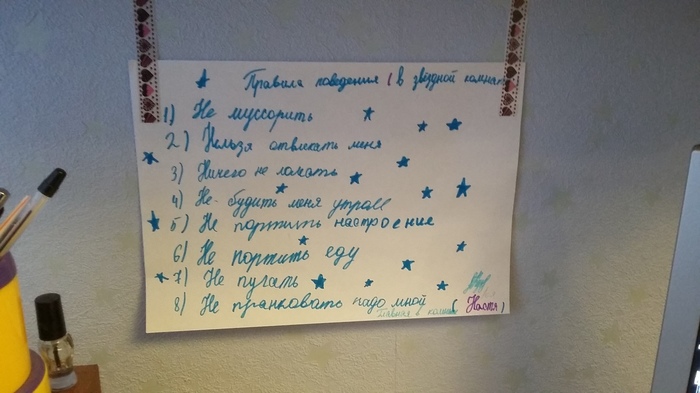 Правила поведения в звёздной комнате
1) Не муссорить
2) Нельзя отвлекать меня
3) Ничего не ломать
4) Не будить меня утром
5) Не портить настроение
6) Не портить еду
7) Не пугать
8) Не пранковать надо мной
Главная в комнате ( Настя )